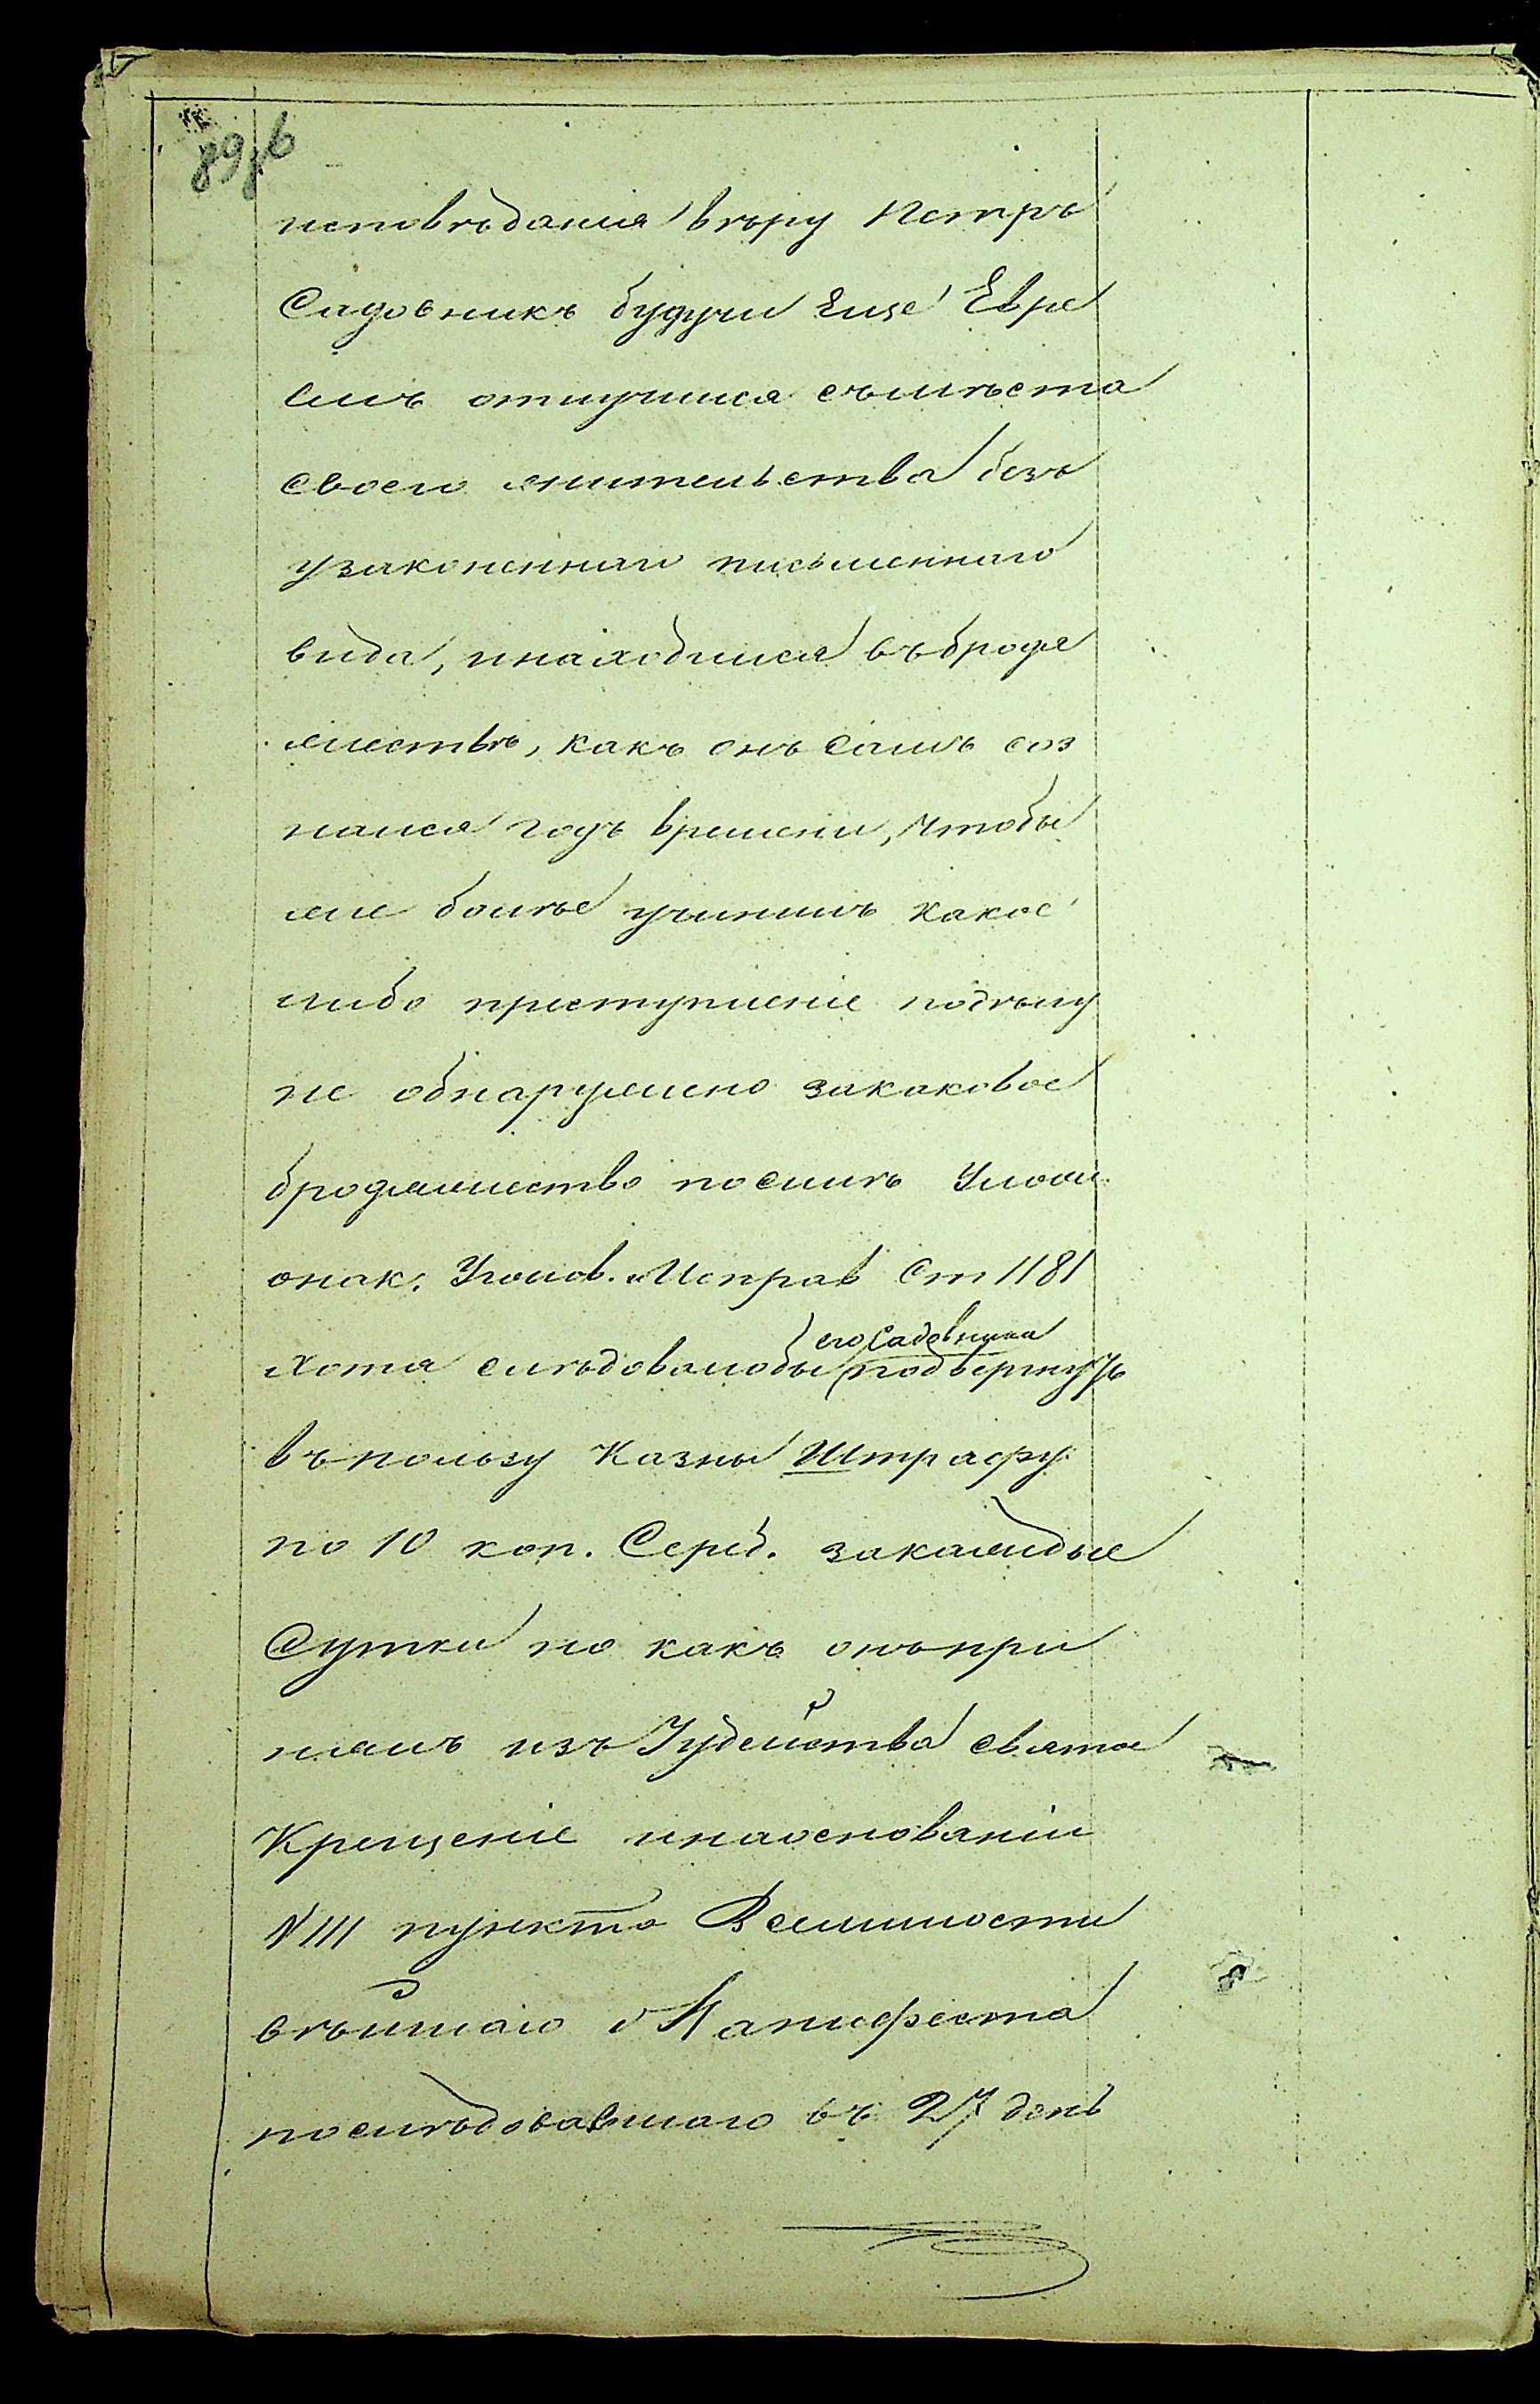 исповѣданія вѣру Петръ
Садовникъ будучи еще Евре
емъ отлучился съ мѣста
своего жительства безъ
узаконеннаго письменнаго
вида, и находился въ бродя
жествѣ, какъ онъ самъ соз
нался годъ времени, чтобы
же болѣе учинилъ какое
либо преступленіе по дѣлу
не обнаружено за каковое
бродяжество по силѣ Улож.
о нак. Уголов. и Исправ Ст 1181
его Садовника
хотя слѣдовало бы подвергнуть
въ пользу Казны Штрафу
по 10 коп. Сереб. за каждые
Сутки но какъ онъ при
нялъ изъ Іудейства святое
Крещеніе и на основаніи
VIII пункта Всемилости
вѣйшаго Манифеста
послѣдовавшаго въ 27 день